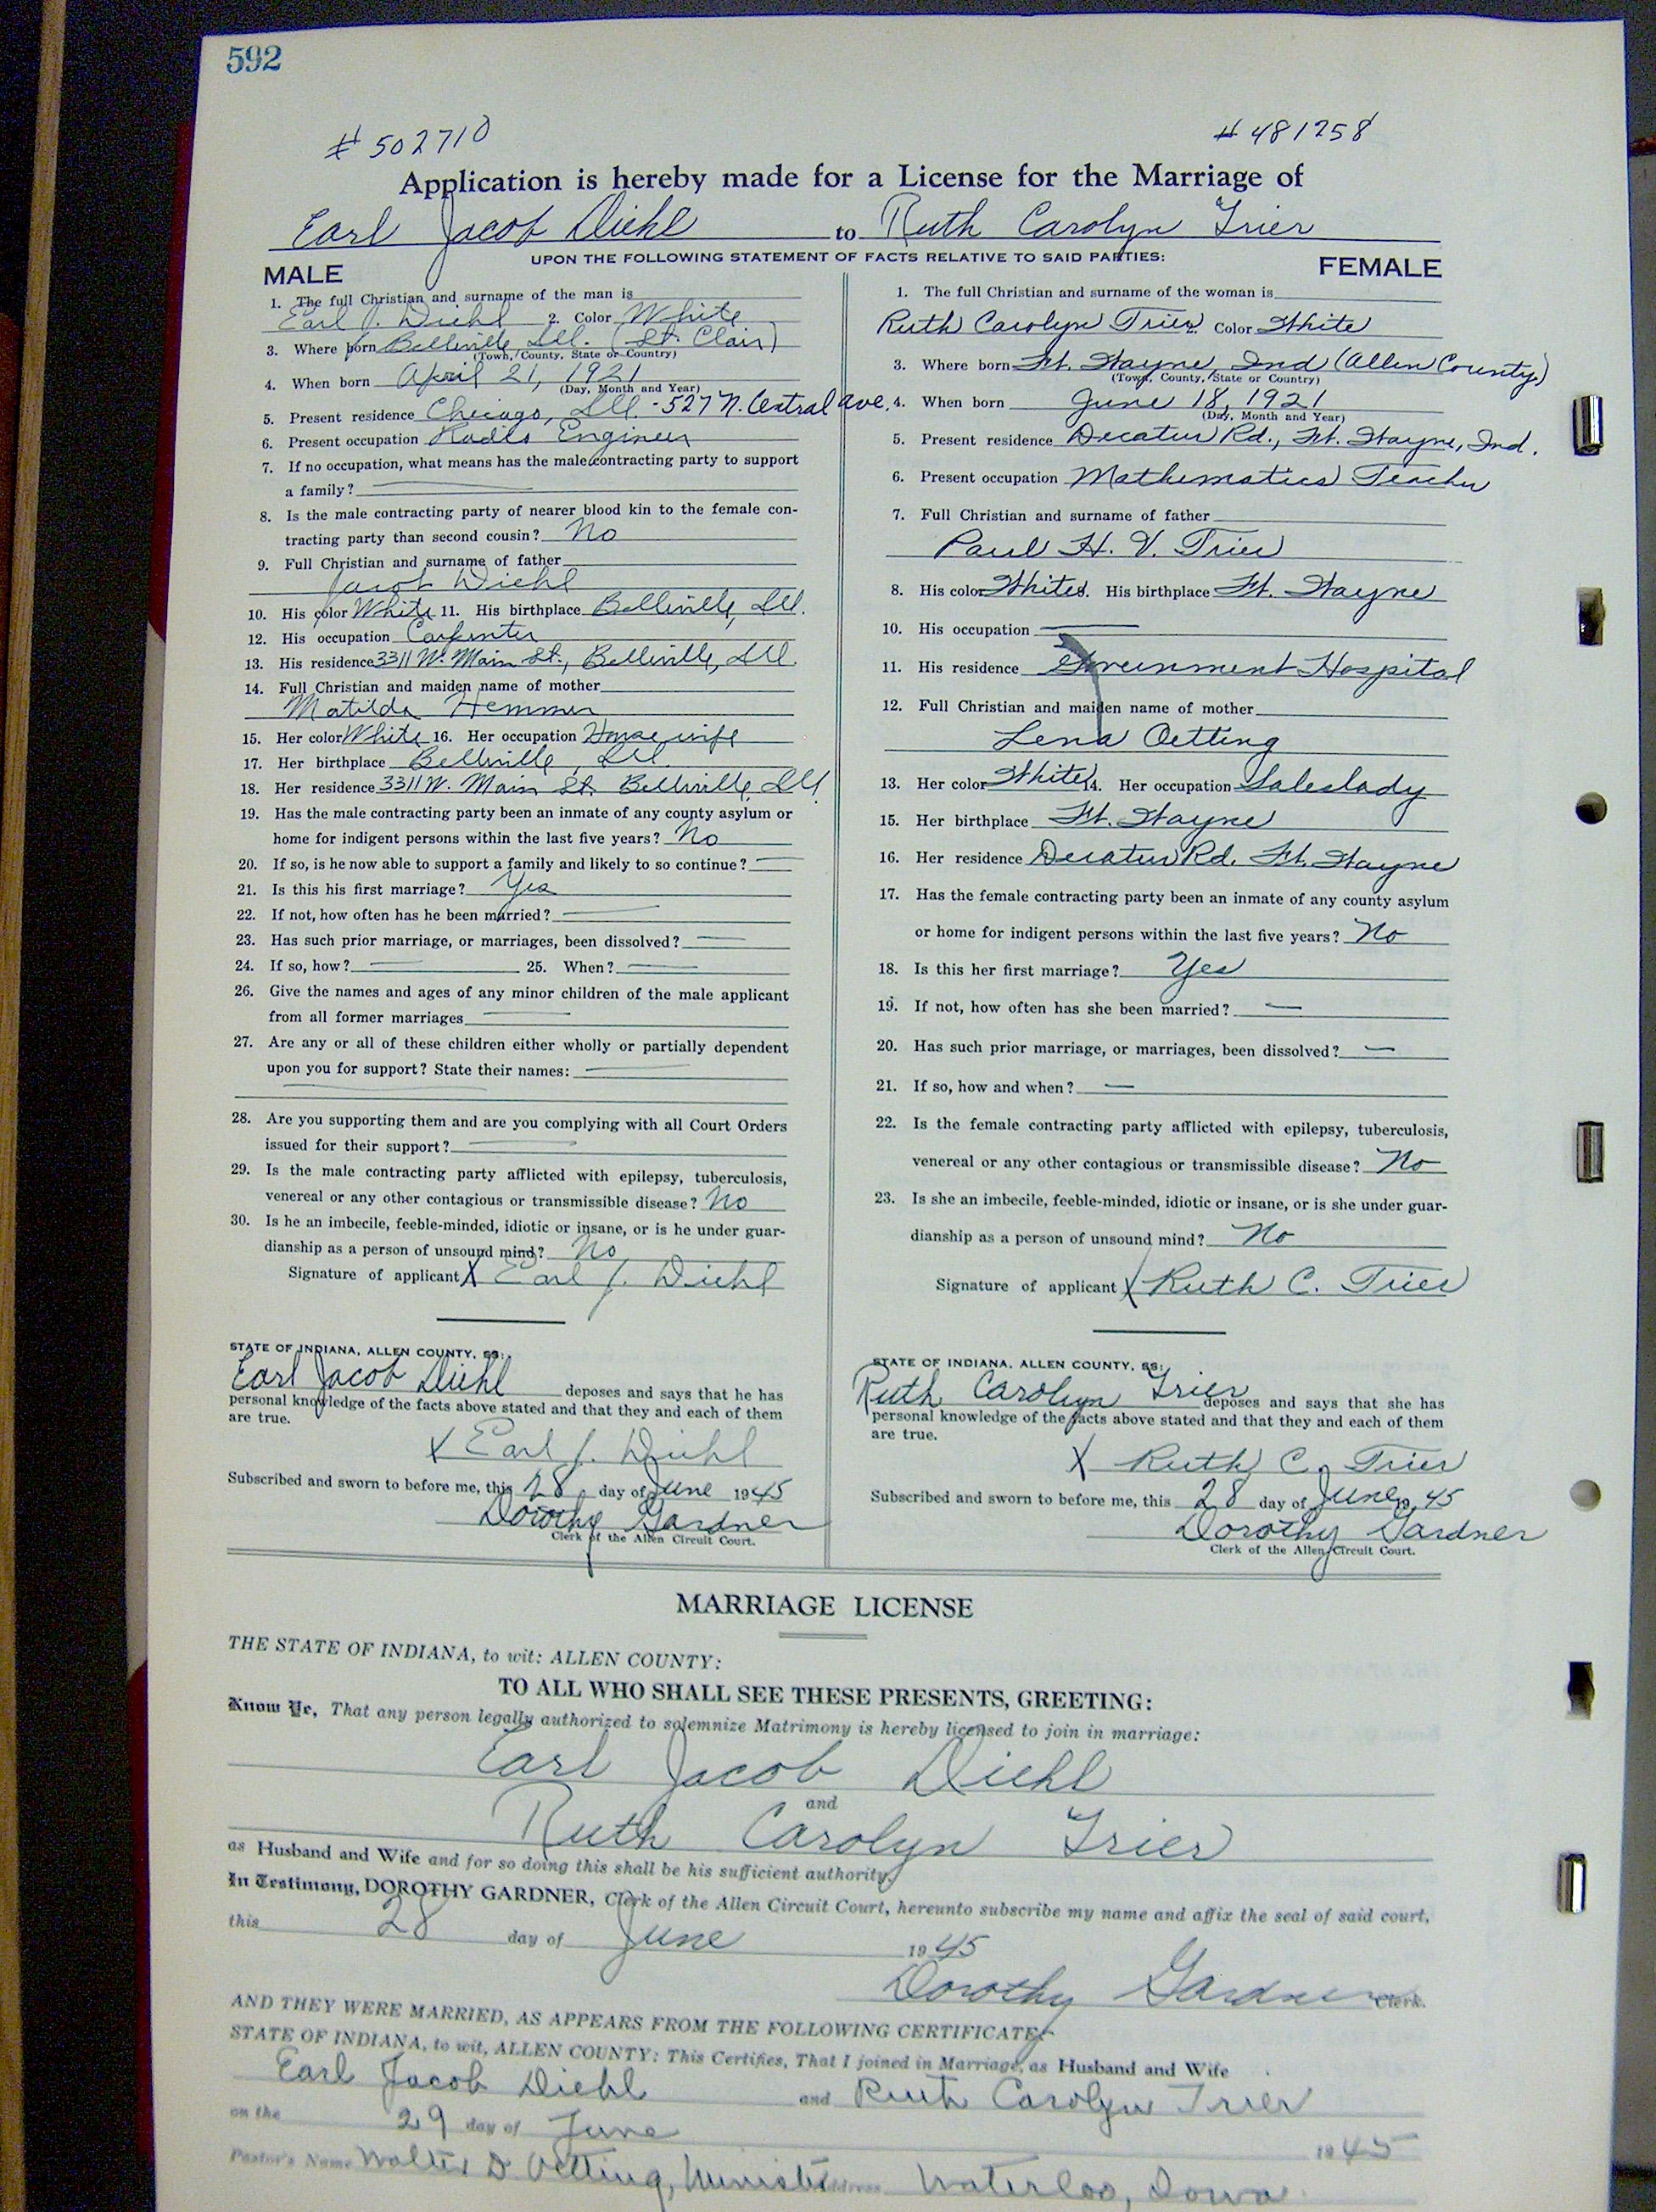 592
# 502710 # 481258
Application is hereby made for a License for the Marriage of
Earl Jacob Diehl to Ruth Carolyn Trier
UPON THE FOLLOWING STATEMENT OF FACTS RELATIVE TO SAID PARTIES:
MALE
1. The full Christian and surname of the man is
Earl J. Diehl 2. Color White
3. Where born Belleville, Ill. (St. Clair)
(Town, County, State or Country)
4. When born April 21, 1921
(Day, Month and Year)
5. Present residence Chicago, Ill. - 527 N. Central Ave.
6. Present occupation Radio Engineer
7. If no occupation, what means has the male contracting party to support
a family? —
8. Is the male contracting party of nearer blood kin to the female con-
tracting party than second cousin? No
9. Full Christian and surname of father
Jacob Diehl
10. His color White 11. His birthplace Belleville, Ill.
12. His occupation Carpenter
13. His residence 3311 W. Main St., Belleville, Ill.
14. Full Christian and maiden name of mother
Matilda Hemmer
15. Her color White 16. Her occupation Housewife
17. Her birthplace Belleville, Ill.
18. Her residence 3311 W. Main St. Belleville, Ill.
19. Has the male contracting party been an inmate of any county asylum or
home for indigent persons within the last five years? No
20. If so, is he now able to support a family and likely to so continue? —
21. Is this his first marriage? Yes
22. If not, how often has he been married? —
23. Has such prior marriage, or marriages, been dissolved? —
24. If so, how? — 25. When? —
26. Give the names and ages of any minor children of the male applicant
from all former marriages —
27. Are any or all of these children either wholly or partially dependent
upon you for support? State their names: —
28. Are you supporting them and are you complying with all Court Orders
issued for their support? —
29. Is the male contracting party afflicted with epilepsy, tuberculosis,
venereal or any other contagious or transmissible disease? No
30. Is he an imbecile, feeble-minded, idiotic or insane, or is he under guar-
dianship as a person of unsound mind? No
Signature of applicant X Earl J. Diehl
STATE OF INDIANA, ALLEN COUNTY, SS:
Earl Jacob Diehl deposes and says that he has
personal knowledge of the facts above stated and that they and each of them
are true.
X Earl J. Diehl
Subscribed and sworn to before me, this 28 day of June 1945
Dorothy Gardner
Clerk of the Allen Circuit Court.
FEMALE
1. The full Christian and surname of the woman is
Ruth Carolyn Trier 2. Color White
3. Where born Ft. Wayne, Ind (Allen County)
(Town, County, State or Country)
4. When born June 18, 1921
(Day, Month and Year)
5. Present residence Decatur Rd., Ft. Wayne, Ind.
6. Present occupation Mathematics Teacher
7. Full Christian and surname of father
Paul H. V. Trier
8. His color White 9. His birthplace Ft. Wayne
10. His occupation —
11. His residence Government Hospital
12. Full Christian and maiden name of mother
Lena Oetting
13. Her color White 14. Her occupation Saleslady
15. Her birthplace Ft. Wayne
16. Her residence Decatur Rd. Ft. Wayne
17. Has the female contracting party been an inmate of any county asylum
or home for indigent persons within the last five years? No
18. Is this her first marriage? Yes
19. If not, how often has she been married? —
20. Has such prior marriage, or marriages, been dissolved? —
21. If so, how and when? —
22. Is the female contracting party afflicted with epilepsy, tuberculosis,
venereal or any other contagious or transmissible disease? No
23. Is she an imbecile, feeble-minded, idiotic or insane, or is she under guar-
dianship as a person of unsound mind? No
Signature of applicant X Ruth C. Trier
STATE OF INDIANA, ALLEN COUNTY, SS:
Ruth Carolyn Trier deposes and says that she has
personal knowledge of the facts above stated and that they and each of them
are true.
X Ruth C. Trier
Subscribed and sworn to before me, this 28 day of June, 1945
Dorothy Gardner
Clerk of the Allen Circuit Court.
MARRIAGE LICENSE
THE STATE OF INDIANA, to wit: ALLEN COUNTY:
TO ALL WHO SHALL SEE THESE PRESENTS, GREETING:
Know Ye, That any person legally authorized to solemnize Matrimony is hereby licensed to join in marriage:
Earl Jacob Diehl
and
Ruth Carolyn Trier
as Husband and Wife and for so doing this shall be his sufficient authority.
In Testimony, DOROTHY GARDNER, Clerk of the Allen Circuit Court, hereunto subscribe my name and affix the seal of said court,
this 28 day of June 1945
Dorothy Gardner Clerk.
AND THEY WERE MARRIED, AS APPEARS FROM THE FOLLOWING CERTIFICATE:
STATE OF INDIANA, to wit, ALLEN COUNTY: This Certifies, That I joined in Marriage, as Husband and Wife
Earl Jacob Diehl and Ruth Carolyn Trier
on the 29 day of June 1945
Pastor's Name Walter D. Oetting, Minister Address Waterloo, Iowa